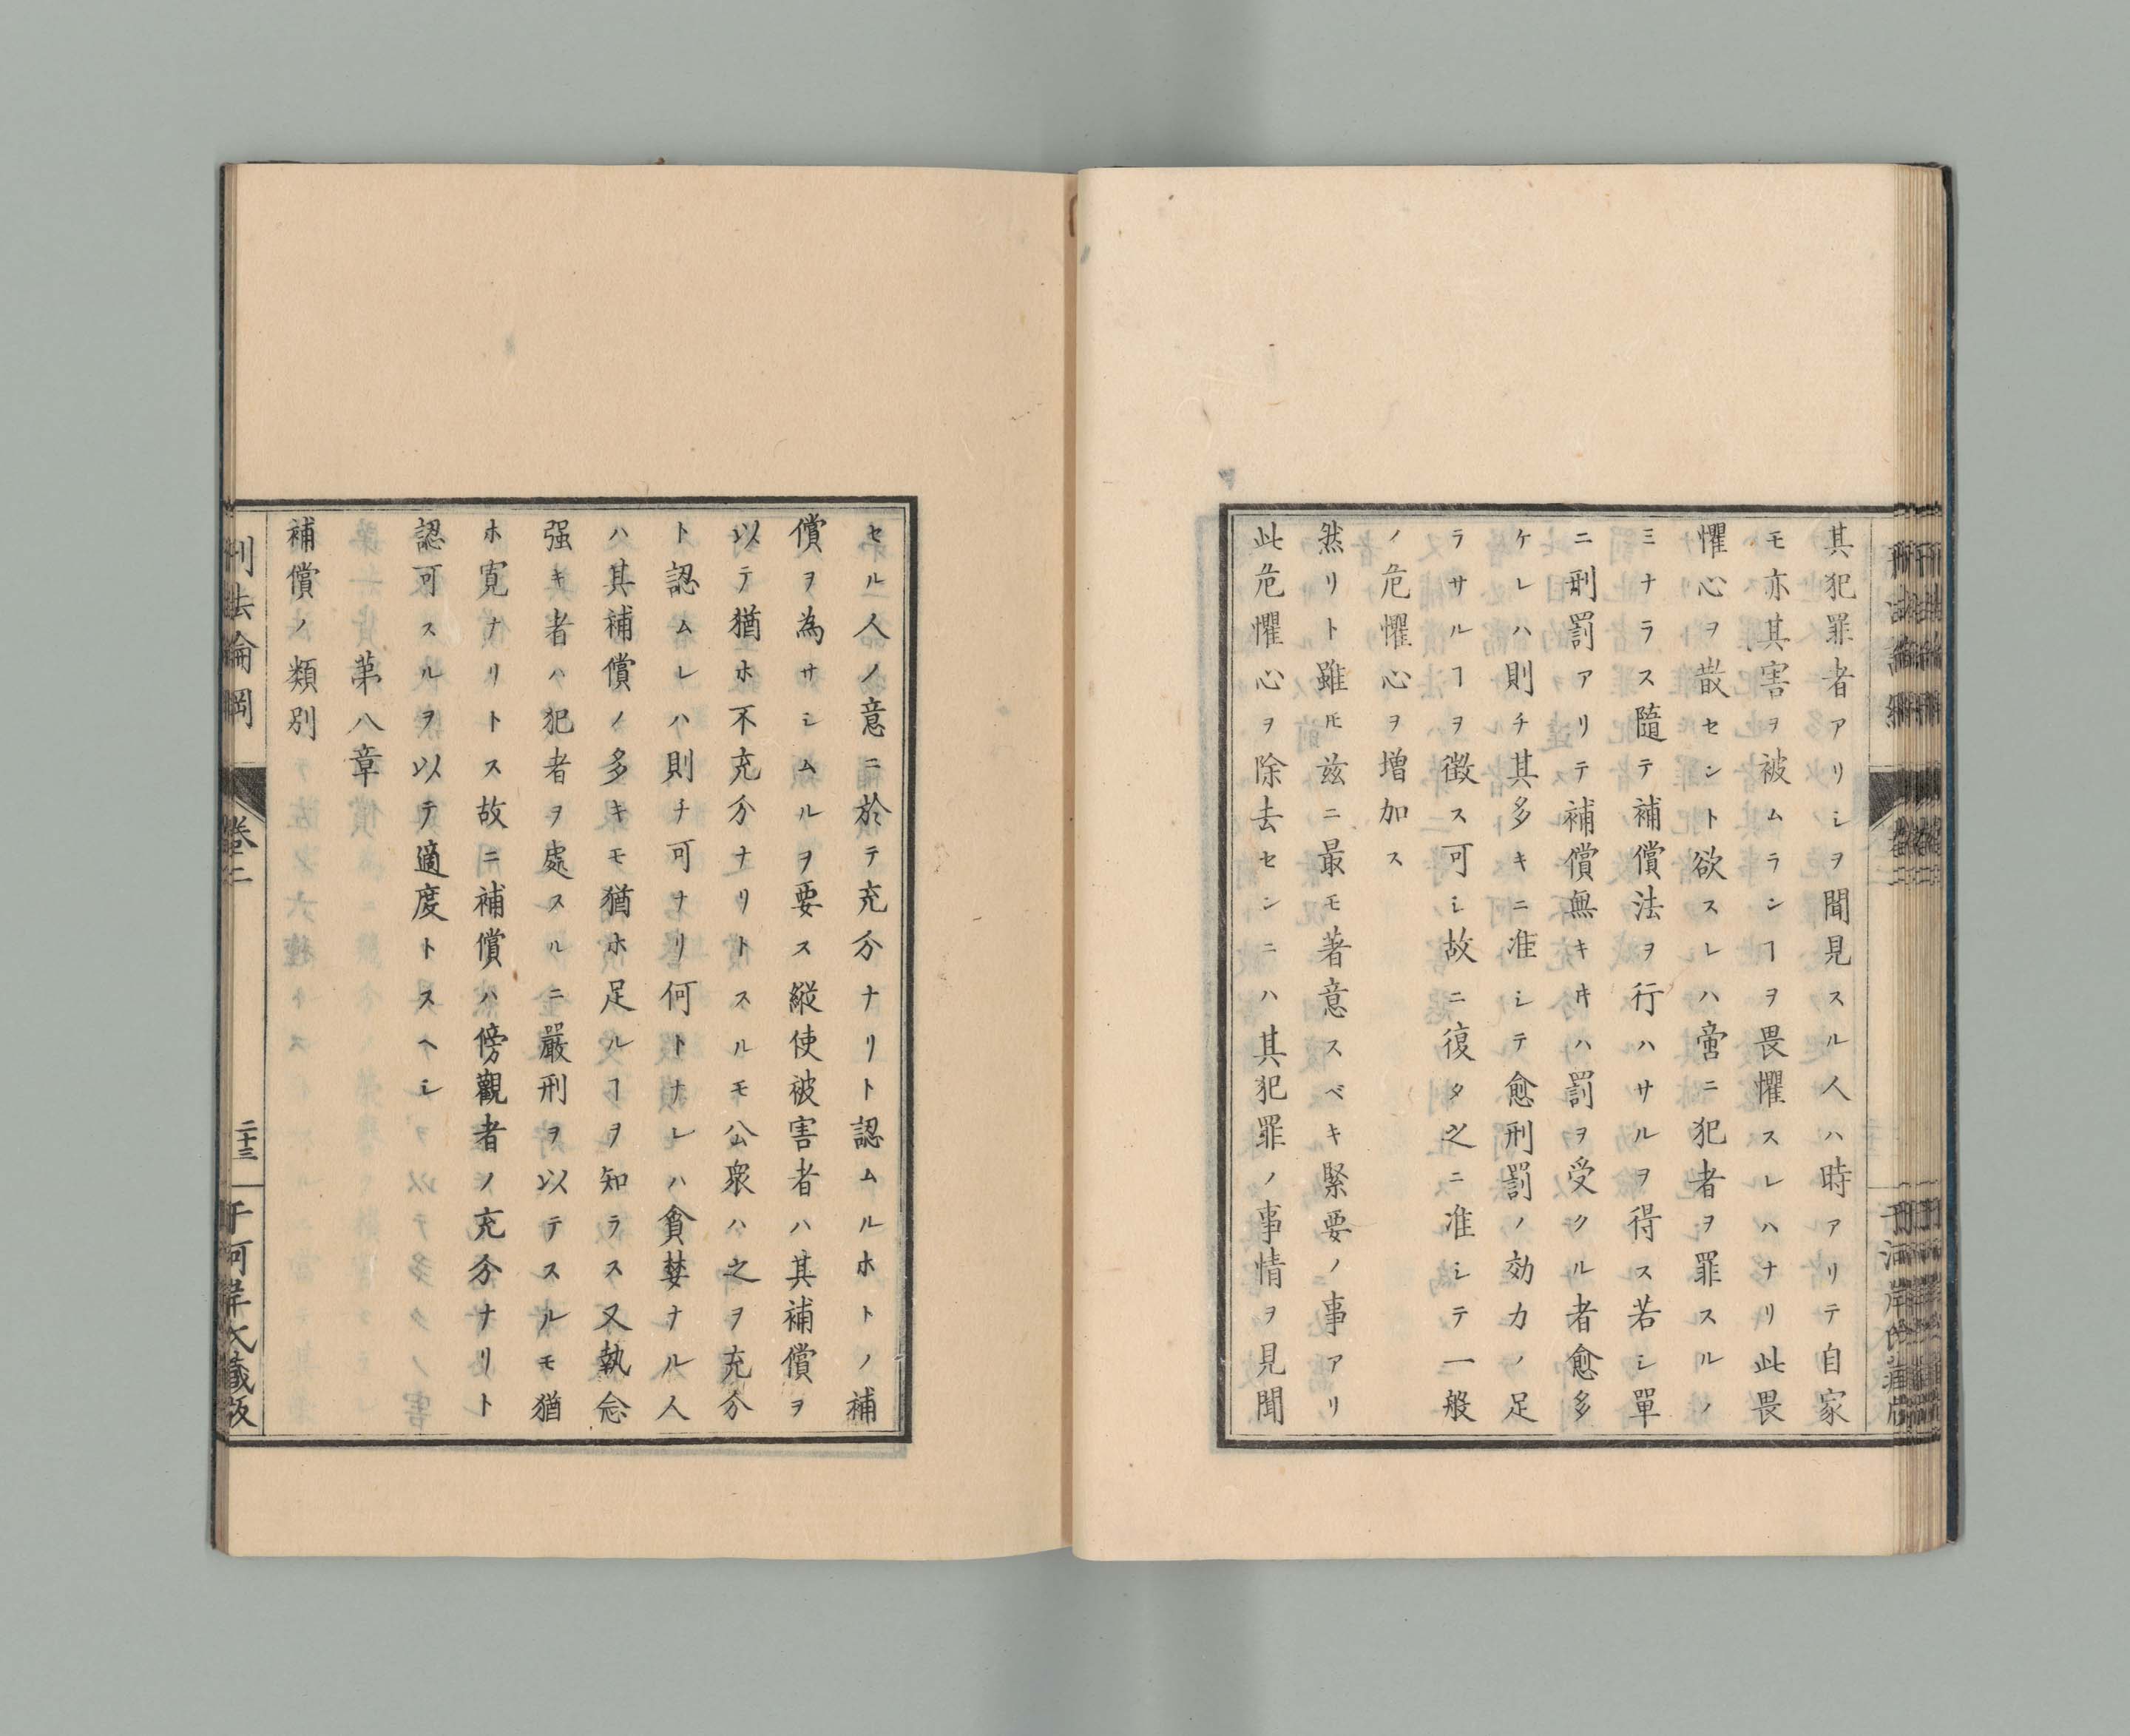 其犯罪者アリシヲ聞見スル人ハ時アリテ自家
モ亦其害ヲ被ムランヿヲ畏懼スレハナリ此畏
懼心ヲ散セント欲スレハ啻ニ犯者ヲ罪スルノ
ミナラス隨テ補償法ヲ行ハサルヲ得ス若シ單
ニ刑罰アリテ補償無キキハ罰ヲ受クル者愈多
ケレハ則チ其多キニ准シテ愈刑罰ノ効力ノ足
ラサルヿヲ徴ス可シ故ニ復タ之ニ准シテ一般
ノ危懼心ヲ增加ス
然リト雖𪜈茲ニ最モ著意スベキ緊要ノ事アリ
此危懼心ヲ除去センニハ其犯罪ノ事情ヲ見聞
セル人ノ意ニ於テ充分ナリト認ムルホトノ補
償ヲ為サシムルヲ要ス縦使被害者ハ其補償ヲ
以テ猶ホ不充分ナリトスルモ公衆ハ之ヲ充分
ト認ムレハ則チ可ナリ何トナレハ貪婪ナル人
ハ其補償ノ多キモ猶ホ足ルヿヲ知ラス又執念
强キ者ハ犯者ヲ處スルニ嚴刑ヲ以テスルモ猶
ホ寛ナリトス故ニ補償ハ傍觀者ノ充分ナリト
認可スルヲ以テ適度トスヘシ
第八章
補償ノ類別
刑法論綱
卷二
二十三
千河岸氏藏版